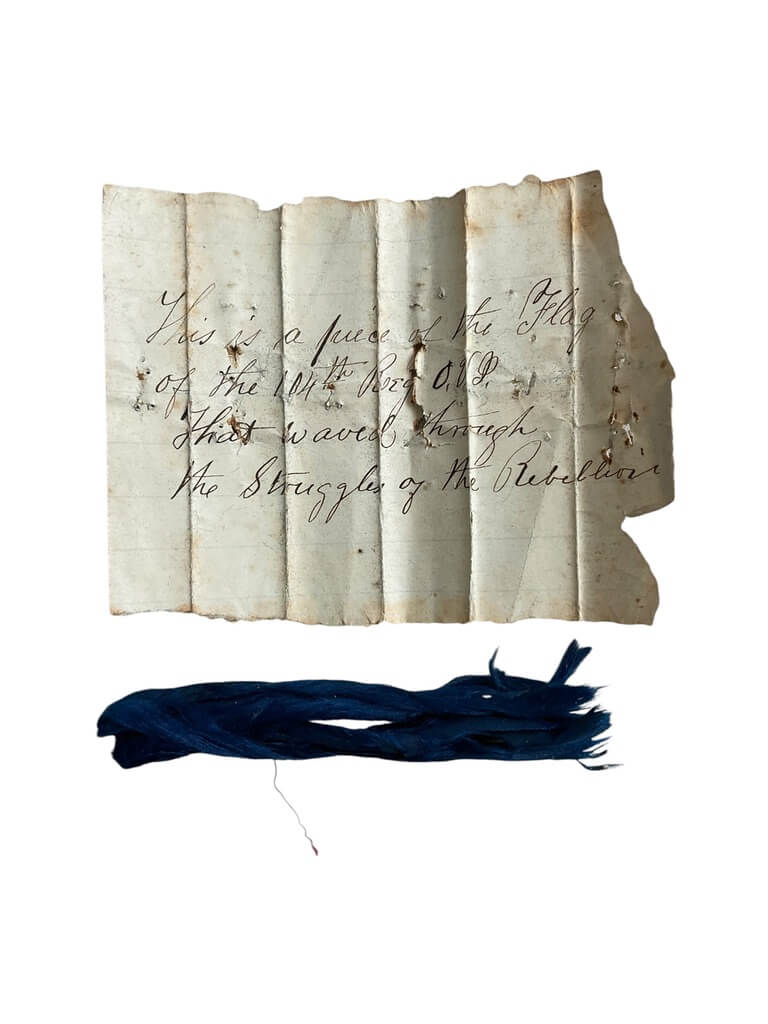 This is a piece of the Flag
of the 104th Reg O.V.I.
That waved through
the Struggles of the Rebellion